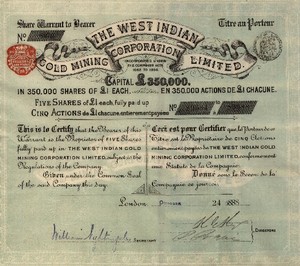 Share Warrant to Bearer
Titre au Porteur
No
No
THE WEST INDIAN
GOLD MINING CORPORATION LIMITED.
CAPITAL £350,000.
IN 350,000 SHARES OF £1 EACH.
EN 350,000 ACTIONS DE £1 CHACUNE.
FIVE SHARES of £1 each, fully paid up
CINQ ACTIONS de £1 chacune, entierement payées
This is to Certify that the Bearer of this
Warrant is the Proprietor of FIVE Shares
fully paid up in THE WEST INDIAN GOLD
MINING CORPORATION LIMITED, subject to the
Regulations of the Company.
Given under the Common Seal
of the said Company this day.
Ceci est pour Certifier que le Porteur de ce
Titre est le Propriétaire de CINQ Actions
entierement payées de THE WEST INDIAN GOLD
MINING CORPORATION LIMITED, conformément
aux Statuts de la Compagnie.
Donné sous le Sceau de la
Compagnie ce jour.
London
24 1888
SECRETARY